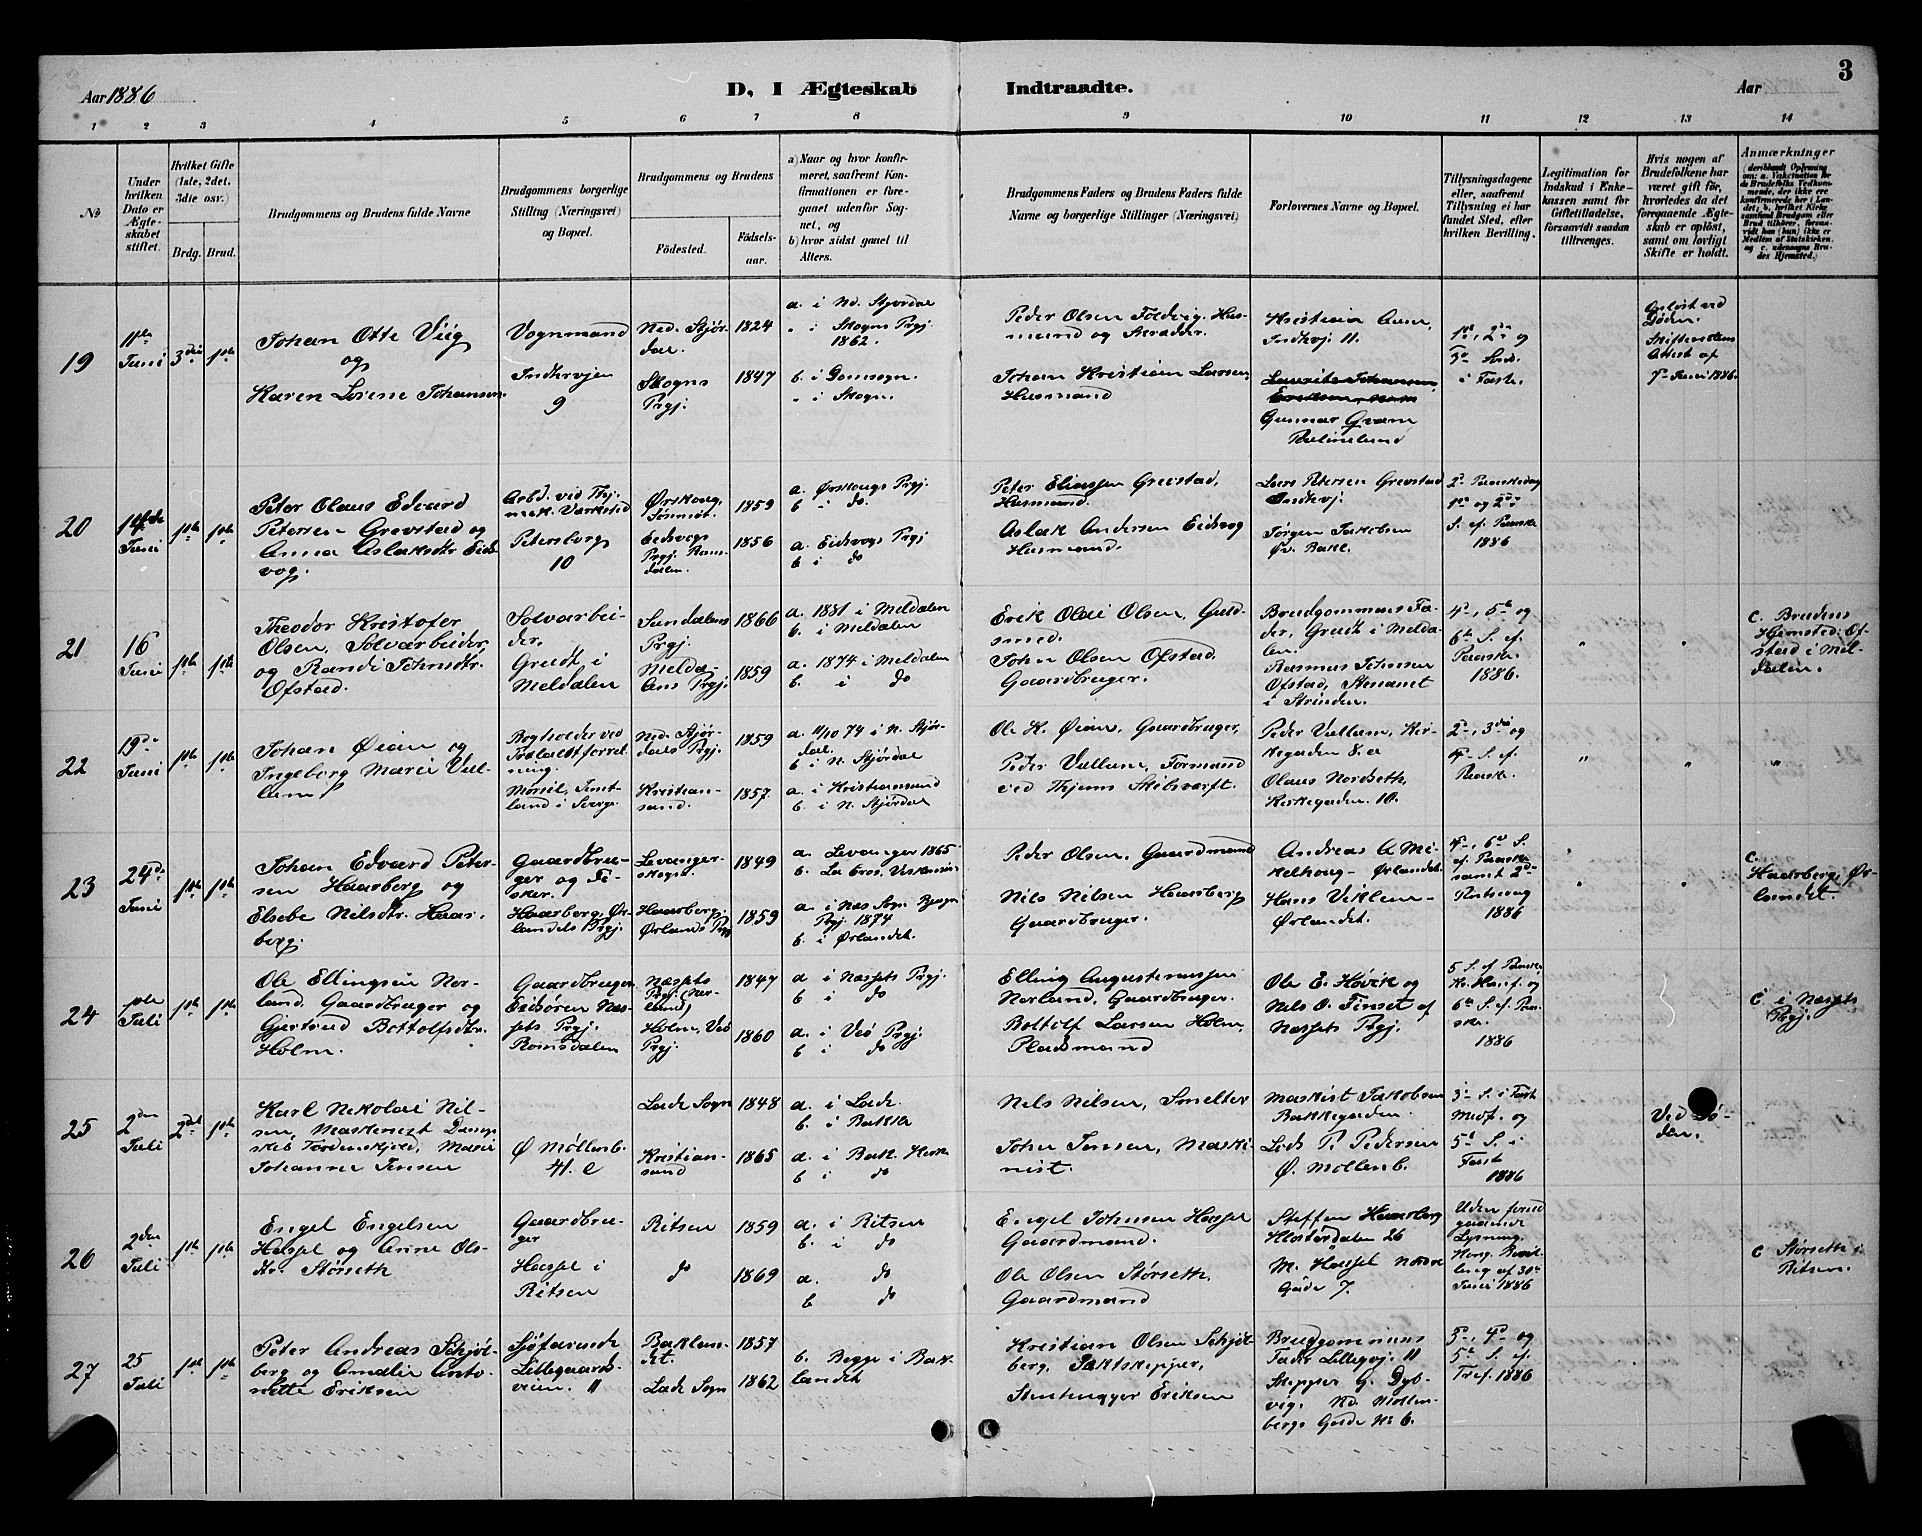 Aar 1886
D, I Ægteskab Indtraadte.
Aar
3
1 2 3 4 5 6 7 8 9 10 11 12 13 14
№
Under hvilken Dato er Ægteskabet stiftet.
Hvilket Gifte (1ste, 2det, 3die osv.)
Brdg. Brud.
Brudgommens og Brudens fulde Navne
Brudgommens borgerlige Stilling (Næringsvei) og Bopæl.
Brudgommens og Brudens
Fødested.
Fødselsaar.
a) Naar og hvor konfirmeret, saafremt Konfirmationen er foregaaet udenfor Sognet, og
b) hvor sidst gaaet til Alters.
Brudgommens Faders og Brudens Faders fulde Navne og borgerlige Stillinger (Næringsvei)
Forlovernes Navne og Bopæl.
Tillysningsdagene eller, saafremt Tillysning ei har fundet Sted, efter hvilken Bevilling.
Legitimation for Indskud i Enkekassen samt for Giftetilladelse, forsaavidt saadan tiltrænges.
Hvis nogen af Brudefolkene har været gift før, hvorledes da det foregaaende Ægteskab er opløst, samt om lovligt Skifte er holdt.
Anmærkninger
19
11te Juni
3die 1ste
Johan Otte Viig
og
Karen Lorene Johansen
Vognmand
Indhervejen
9
Ned. Stjørdal.
Skogns Prgj.
1824
1847
a. i Nd. Stjørdal
" i Skogns Prgj.
1862.
b. i Domsogn.
" i Skogn.
Peder Olsen Foldvig, Husmand og Skrædder.
Johan Kristian Larsen
Husmand
Kristian Aune,
Indhvj. 11.
Gunnar Gram
1ste, 2den og
3die Sønd.
i Faste.
Opløst ved
Døden.
Skifterettens
Attest af
7de Juni 1886.
20
14de Juni
1ste 1ste
Peter Olaus Edvard
Petersen Grevstad og
Anna Aslaksdtr. Eidsvog.
Arbd. ved Thj.
mek. Værksted
Petersborg
10
Ørskoug,
Sønmør.
Eidsvogs
Prgj. Romsdalen.
1859
1856
a. Ørskougs Prgj.
b. " do
a. Eidsvogs Prgj
b i do
Peter Eliassen Grevstad,
Husmand.
Aslak Andersen Eidsvog
Husmand.
Lars Petersen Grevstad
Indhvj.
Jørgen Jakobsen
Øv. Bakl.
2den Paaskedag
1ste og 2den
S. ef. Paaske
1886
21
16 Juni
1ste 1ste
Theodor Kristofer
Olsen, Sølvarbeider,
og Randi Johnsdtr.
Ofstad.
Sølvarbeider.
Grudt i
Meldalen
Sundalens
Prgj.
Meldalens Prgj.
1866
1859
a. 1881 i Meldalen
b. i Meldalen
a. 1874 i Meldalen
b. i do
Erik Olai Olsen, Guldsmed.
John Olsen Ofstad.
Gaardbruger.
Brudgommens Fader, Grudt i Meldalen.
Rasmus Johnsen
Ofstad, Stenanet
i Strinden.
4de, 5te og
6te S. ef.
Paaske.
1886.
"
"
C. Brudens
Hjemsted: Ofstad i Meldalen.
22
19de Juni
1ste 1ste
Johan Øian og
Ingeborg Marie Vullum
Bogholder ved
Trælastforretning.
Mørsil, Jemtland i Sverge
Ned. Stjørdals Prgj.
Kristiansand.
1859
1857
a. 11/10 74 i N. Stjørdal.
b i N. Stjørdal
a. i Kristiansand
b. i N. Stjørdal
Ole K. Øian, Gaardbruger,
Peder Vullum, Formand
ved Thjems Skibsværft.
Peder Vullum, Kirkegaden 8.a
Olaus Nordseth,
Kirkegaden. 10.
2den, 3die og
4de S. ef.
Paaske.
"
"
"
23
24de Juni
1ste 1ste
Johan Edvard Petersen Haarberg og
Elsebe Nilsdtr. Haarberg.
Gaardbruger og Fisker.
Haarberg, Ørlandets Prgj.
Levanger-
skogn.
Haarberg,
Ørlands Prgj
1849
1859
a. Levanger 1865
b.
a. i Næs Sogn Bjugn
Prgj. 1874
b. i Ørlandet.
Peder Olsen, Gaardmand
Nils Nilsen Haarberg
Gaardbruger.
Andreas A Mikelhaug - Ørlandet
Hans Viklem
Ørlandet.
4de, 6te S.
ef. Paaske
samt 2den
Pintsedag
1886
"
"
C.
Haarberg, Ørlandet.
24
1ste Juli
1ste 1ste
Ole Ellingsen Norland, Gaardbruger og
Gjertrud Bottolfsdtr.
Holm.
Gaardbruger
Eidsøren Næssets Prgj.
Romsdalen
Næssets
Prgj. (Norland)
Holm, Veø
Prgj.
1847
1860
a i Næssets Prgj.
b i do
a. i Veø Prgj.
b i do
Elling Augustinussen
Norland, Gaardbruger.
Bottolf Larsen Holm,
Pladsmand
Ole E. Høvik og
Nils O. Tinset af
Næssets Prgj.
5 S. ef Paaske
Kr. Himf. og
6te S. ef Paaske.
1886
C i Næssets
Prgj.
25
2den Juli
2det 1ste
Karl Nikolai Nilsen, Maskinist Dampskib Tordenskjold, Marie
Johanne Jensen
Ø Møllenb.
41. c
Lade Sogn
Kristiansand
1848
1865
a. i Lade.
b. i Bakke
a. i Bak. Kirke
b i do
Nils Nilsen, Smelter
John Jensen, Maskinist.
Maskist Jakobsen
Bakkegaden.
Lods P. Pedersen
Ø. Møllenb.
3die S. i Faste
Midf. og
5te S. i
Faste
1886
Ved Døden.
26
2den Juli
1ste 1ste
Engel Engelsen
Hassel og Anne Olsdtr. Størseth
Gaardbruger
Hassel i
Ritsen
Ritsen
do
1859
1869
a. i Ritsen
b. i do
a. do
b do
Engel Johnsen Hassel
Gaardmand.
Ole Olsen Størseth.
Gaardmand
Steffen Haarberg
Klosterdalen 26
M. Hassel Nordre
Gade 7.
Uden forudgaaende
Lysning.
Kong. Bevilling af 30te
Juni 1886
C Størseth i
Ritsen.
27
25 Juli
1ste 1ste
Peter Andreas Schjølberg og Amalie Antonette Eriksen
Sjøfarende
Lillegaardsveien. 11
Baklandet.
Lade Sogn
1857
1862
b. Begge i Baklandet
Kristian Olsen Schjølberg, Jaktskipper,
Stenhugger Eriksen
Brudgommens
Fader Lillegvj. 11
Skipper G. Dybvig. Nd. Møllenbergs Gade No 6.
3die, 4de og
5te S. ef.
Tref. 1886